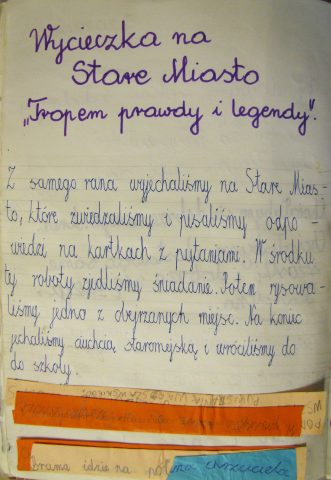 Wycieczka na
Stare Miasto
„Tropem prawdy i legendy".
Z samego rana wyjechaliśmy na Stare Mias-
to, które zwiedzaliśmy i pisaliśmy odpo-
wiedzi na kartkach z pytaniami. W środku
tej roboty zjedliśmy śniadanie. Potem rysowa-
liśmy jedno z obejrzanych miejsc. Na koniec
jechaliśmy ciuchcią staromiejską i wróciliśmy do
do szkoły.
Brama idzie na
chrzciciela